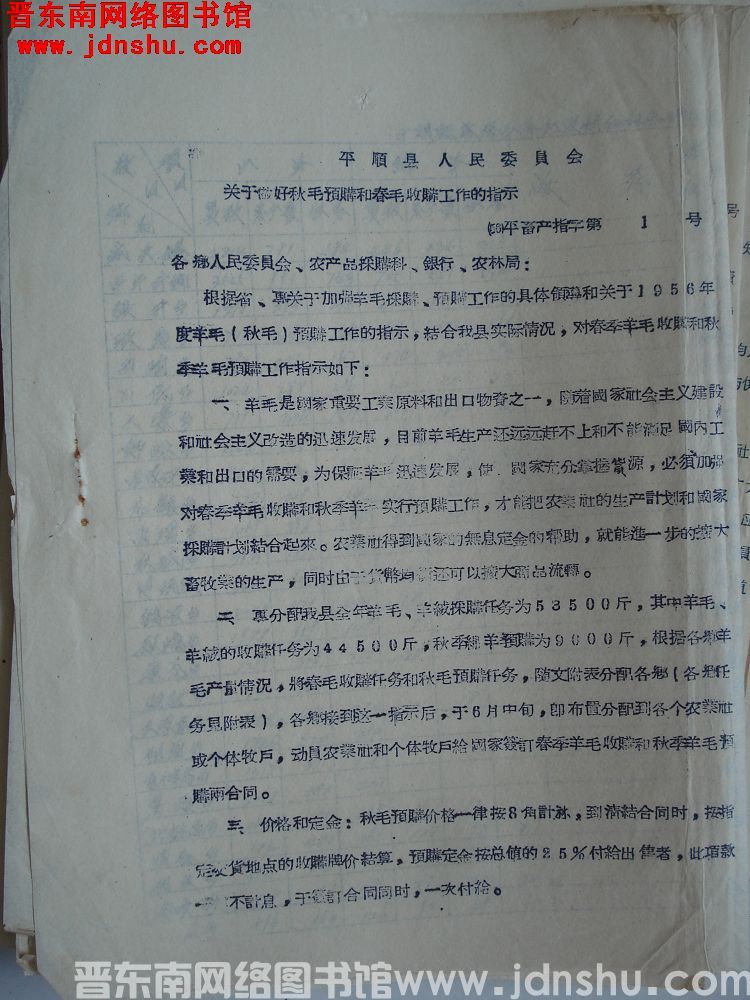 晋东南网络图书馆
www.jdnshu.com
平順县人民委員会
关于做好秋毛預購和春毛收購工作的指示
(56)平畜产指字第 1 号
各乡人民委員会、农产品採購科、銀行、农林局：
根据省、專关于加强羊毛採購、預購工作的具体領導和关于1956年
度羊毛(秋毛)預購工作的指示，結合我县实际情况，对春季羊毛收購和秋
季羊毛預購工作指示如下：
一、羊毛是國家重要工業原料和出口物資之一，随着國家社会主义建設
和社会主义改造的迅速发展，目前羊毛生产还远远赶不上和不能滿足國內工
業和出口的需要，为保証羊毛迅速发展，使國家充分掌握貨源，必須加强
对春季羊毛收購和秋季羊毛实行預購工作，才能把农業社的生产計划和國家
採購計划結合起來。农業社得到國家的無息定金的帮助，就能進一步的擴大
畜牧業的生产，同时由于貨幣 还可以擴大商品流轉。
二、專分配我县全年羊毛、羊絨採購任务为53500斤，其中羊毛、
羊絨的收購任务为44500斤，秋季綿羊預購为9000斤，根据各乡羊
毛产量情况，將春毛收購任务和秋毛預購任务，随文附表分配各乡(各乡任
务見附表)，各乡接到这一指示后，于6月中旬，即布置分配到各个农業社
或个体牧戶，动員农業社和个体牧戶給國家簽訂春季羊毛收購和秋季羊毛預
購兩合同。
三、价格和定金：秋毛預購价格一律按8角計祘，到清結合同时，按指
定交貨地点的收購牌价結算，預購定金按总值的25%付給出售者，此項款
不計息，于簽訂合同同时，一次付給。
号
晋东南网络图书馆www.jdnshu.com